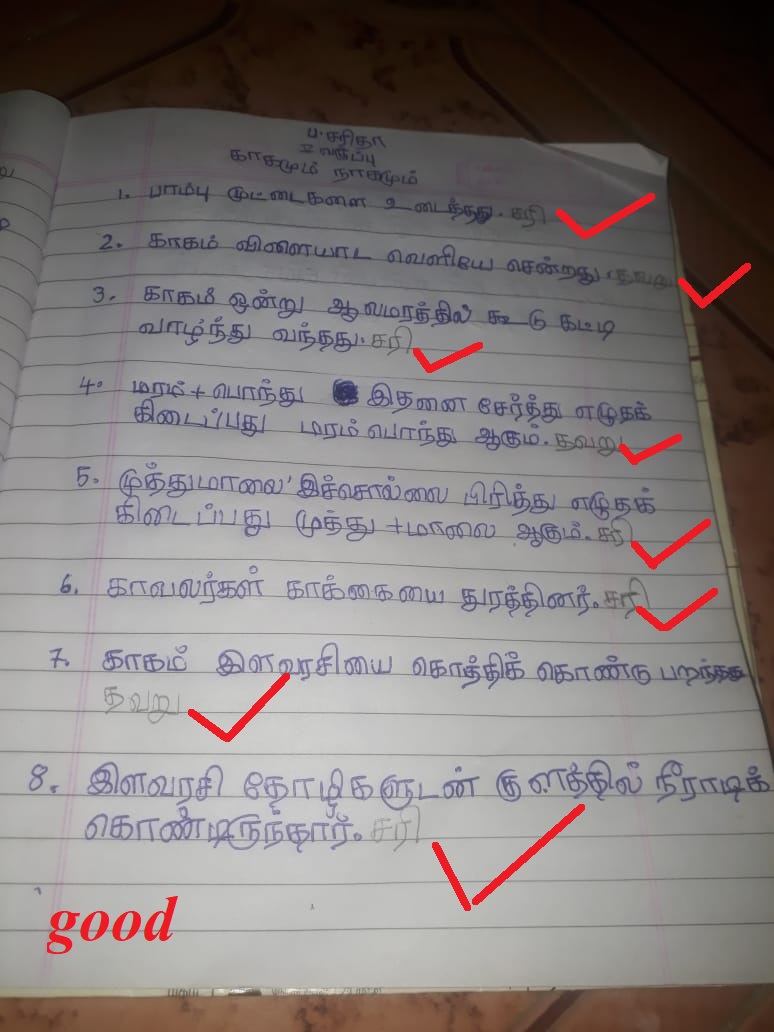 ப. சரிதா
V வகுப்பு
காகமும் நாகமும்
1. பாம்பு முட்டைகளை உடைத்தது. சரி
2. காகம் விளையாட வெளியே சென்றது. தவறு
3. காகம் ஒன்று ஆலமரத்தில் கூடு கட்டி
வாழ்ந்து வந்தது. சரி
4. மரம் + பொந்து இதனை சேர்த்து எழுதக்
கிடைப்பது மரம்பொந்து ஆகும். தவறு
5. முத்துமாலை' இச்சொல்லை பிரித்து எழுதக்
கிடைப்பது முத்து + மாலை ஆகும். சரி
6. காவலர்கள் காக்கையை துரத்தினர். சரி
7. காகம் இளவரசியை கொத்திக் கொண்டு பறந்தது
தவறு
8. இளவரசி தோழிகளுடன் குளத்தில் நீராடிக்
கொண்டிருந்தார். சரி
good